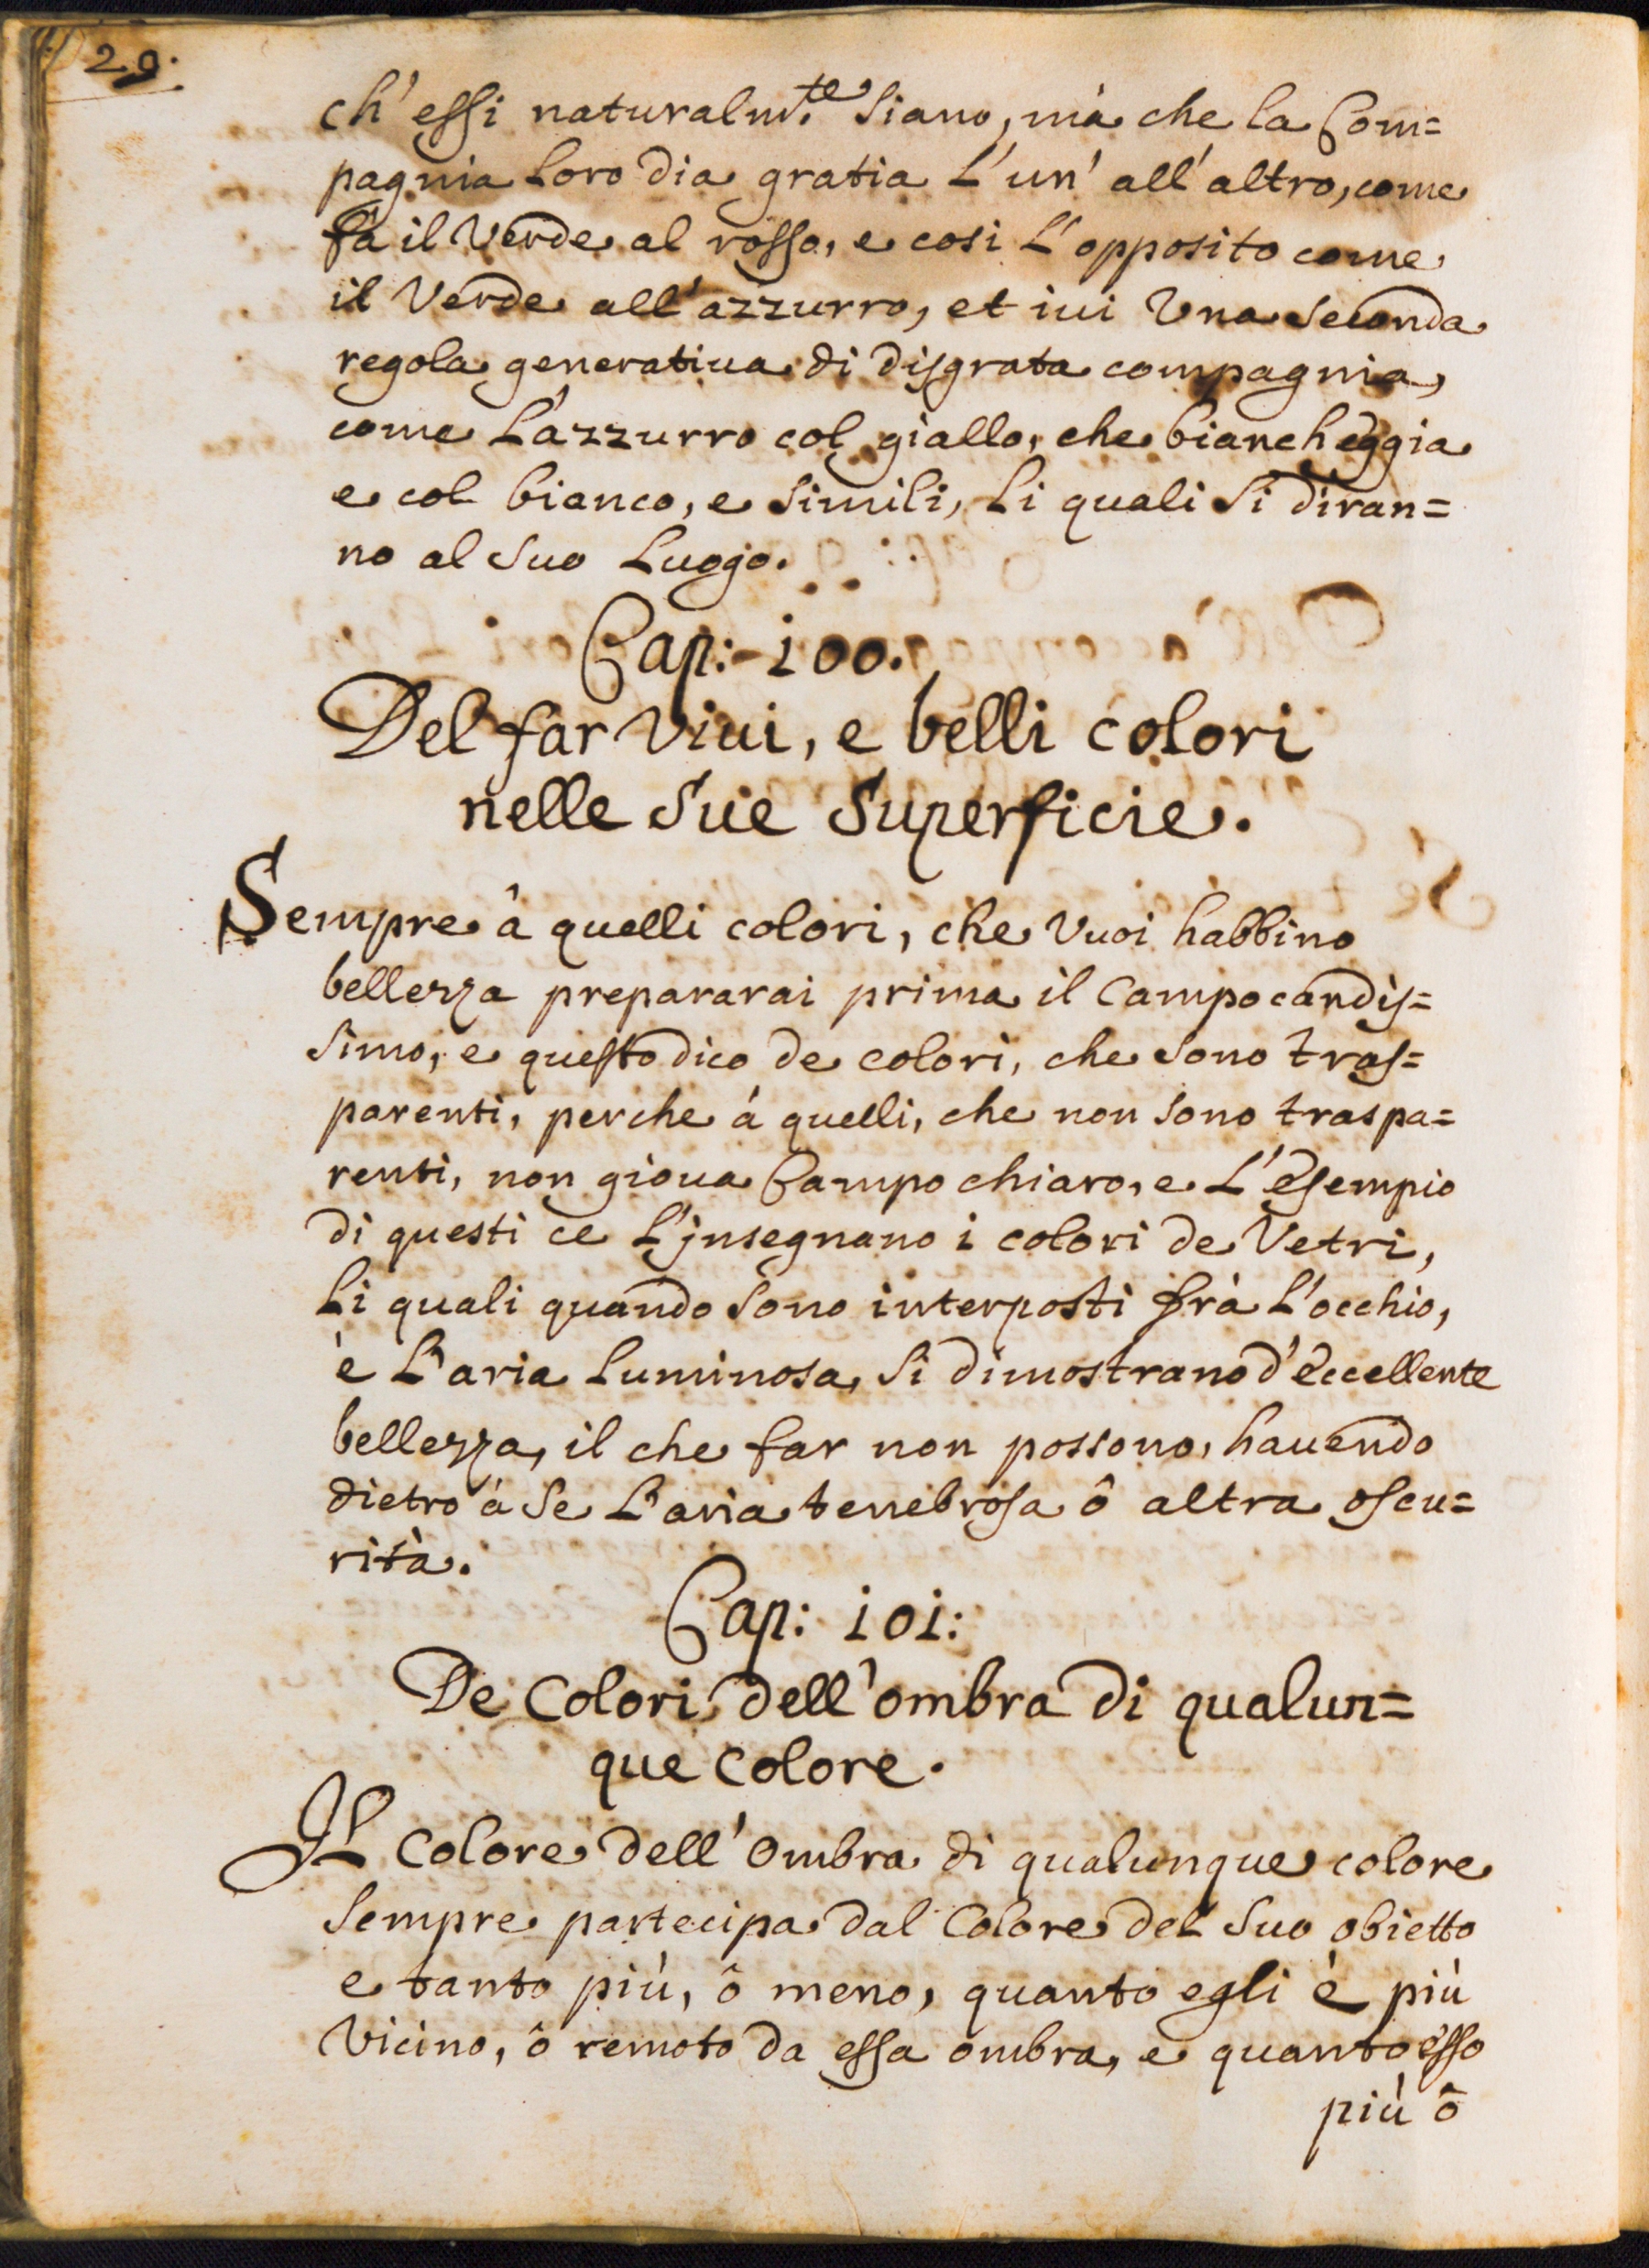 29.
ch'essi naturalm.te siano, mà che la Com=
pagnia loro dia gratia l'un' all'altro, come
fà il Verde al rosso, e cosi l'opposito come
il Verde all'azzurro, et iui Vna seconda
regola generatiua di disgrata compagnia,
come l'azzurro col giallo, che biancheggia
e col bianco, e simili, li quali si diran=
no al suo luogo.
Cap: 100.
Del far Viui, e belli colori
nelle sue superficie.
Sempre â quelli colori, che Vuoi habbino
bellezza prepararai prima il Campo candis=
simo, e questo dico de colori, che sono tras=
parenti, perche á quelli, che non sono traspa=
renti, non gioua Campo chiaro, e l'esempio
di questi ce l'jnsegnano i colori de Vetri,
li quali quando sono interposti frà l'occhio,
è l'aria luminosa, si dimostrano d'eccellente
bellezza, il che far non possono, hauendo
dietro à se l'aria tenebrosa ô altra oscu=
rità.
Cap: 101:
De Colori dell'ombra di qualun=
que colore.
Il Colore dell'ombra di qualunque colore
sempre partecipa dal Colore del suo obietto
e tanto più, ô meno, quanto egli è più
Vicino, ô remoto da essa ombra, e quanto esso
più ô